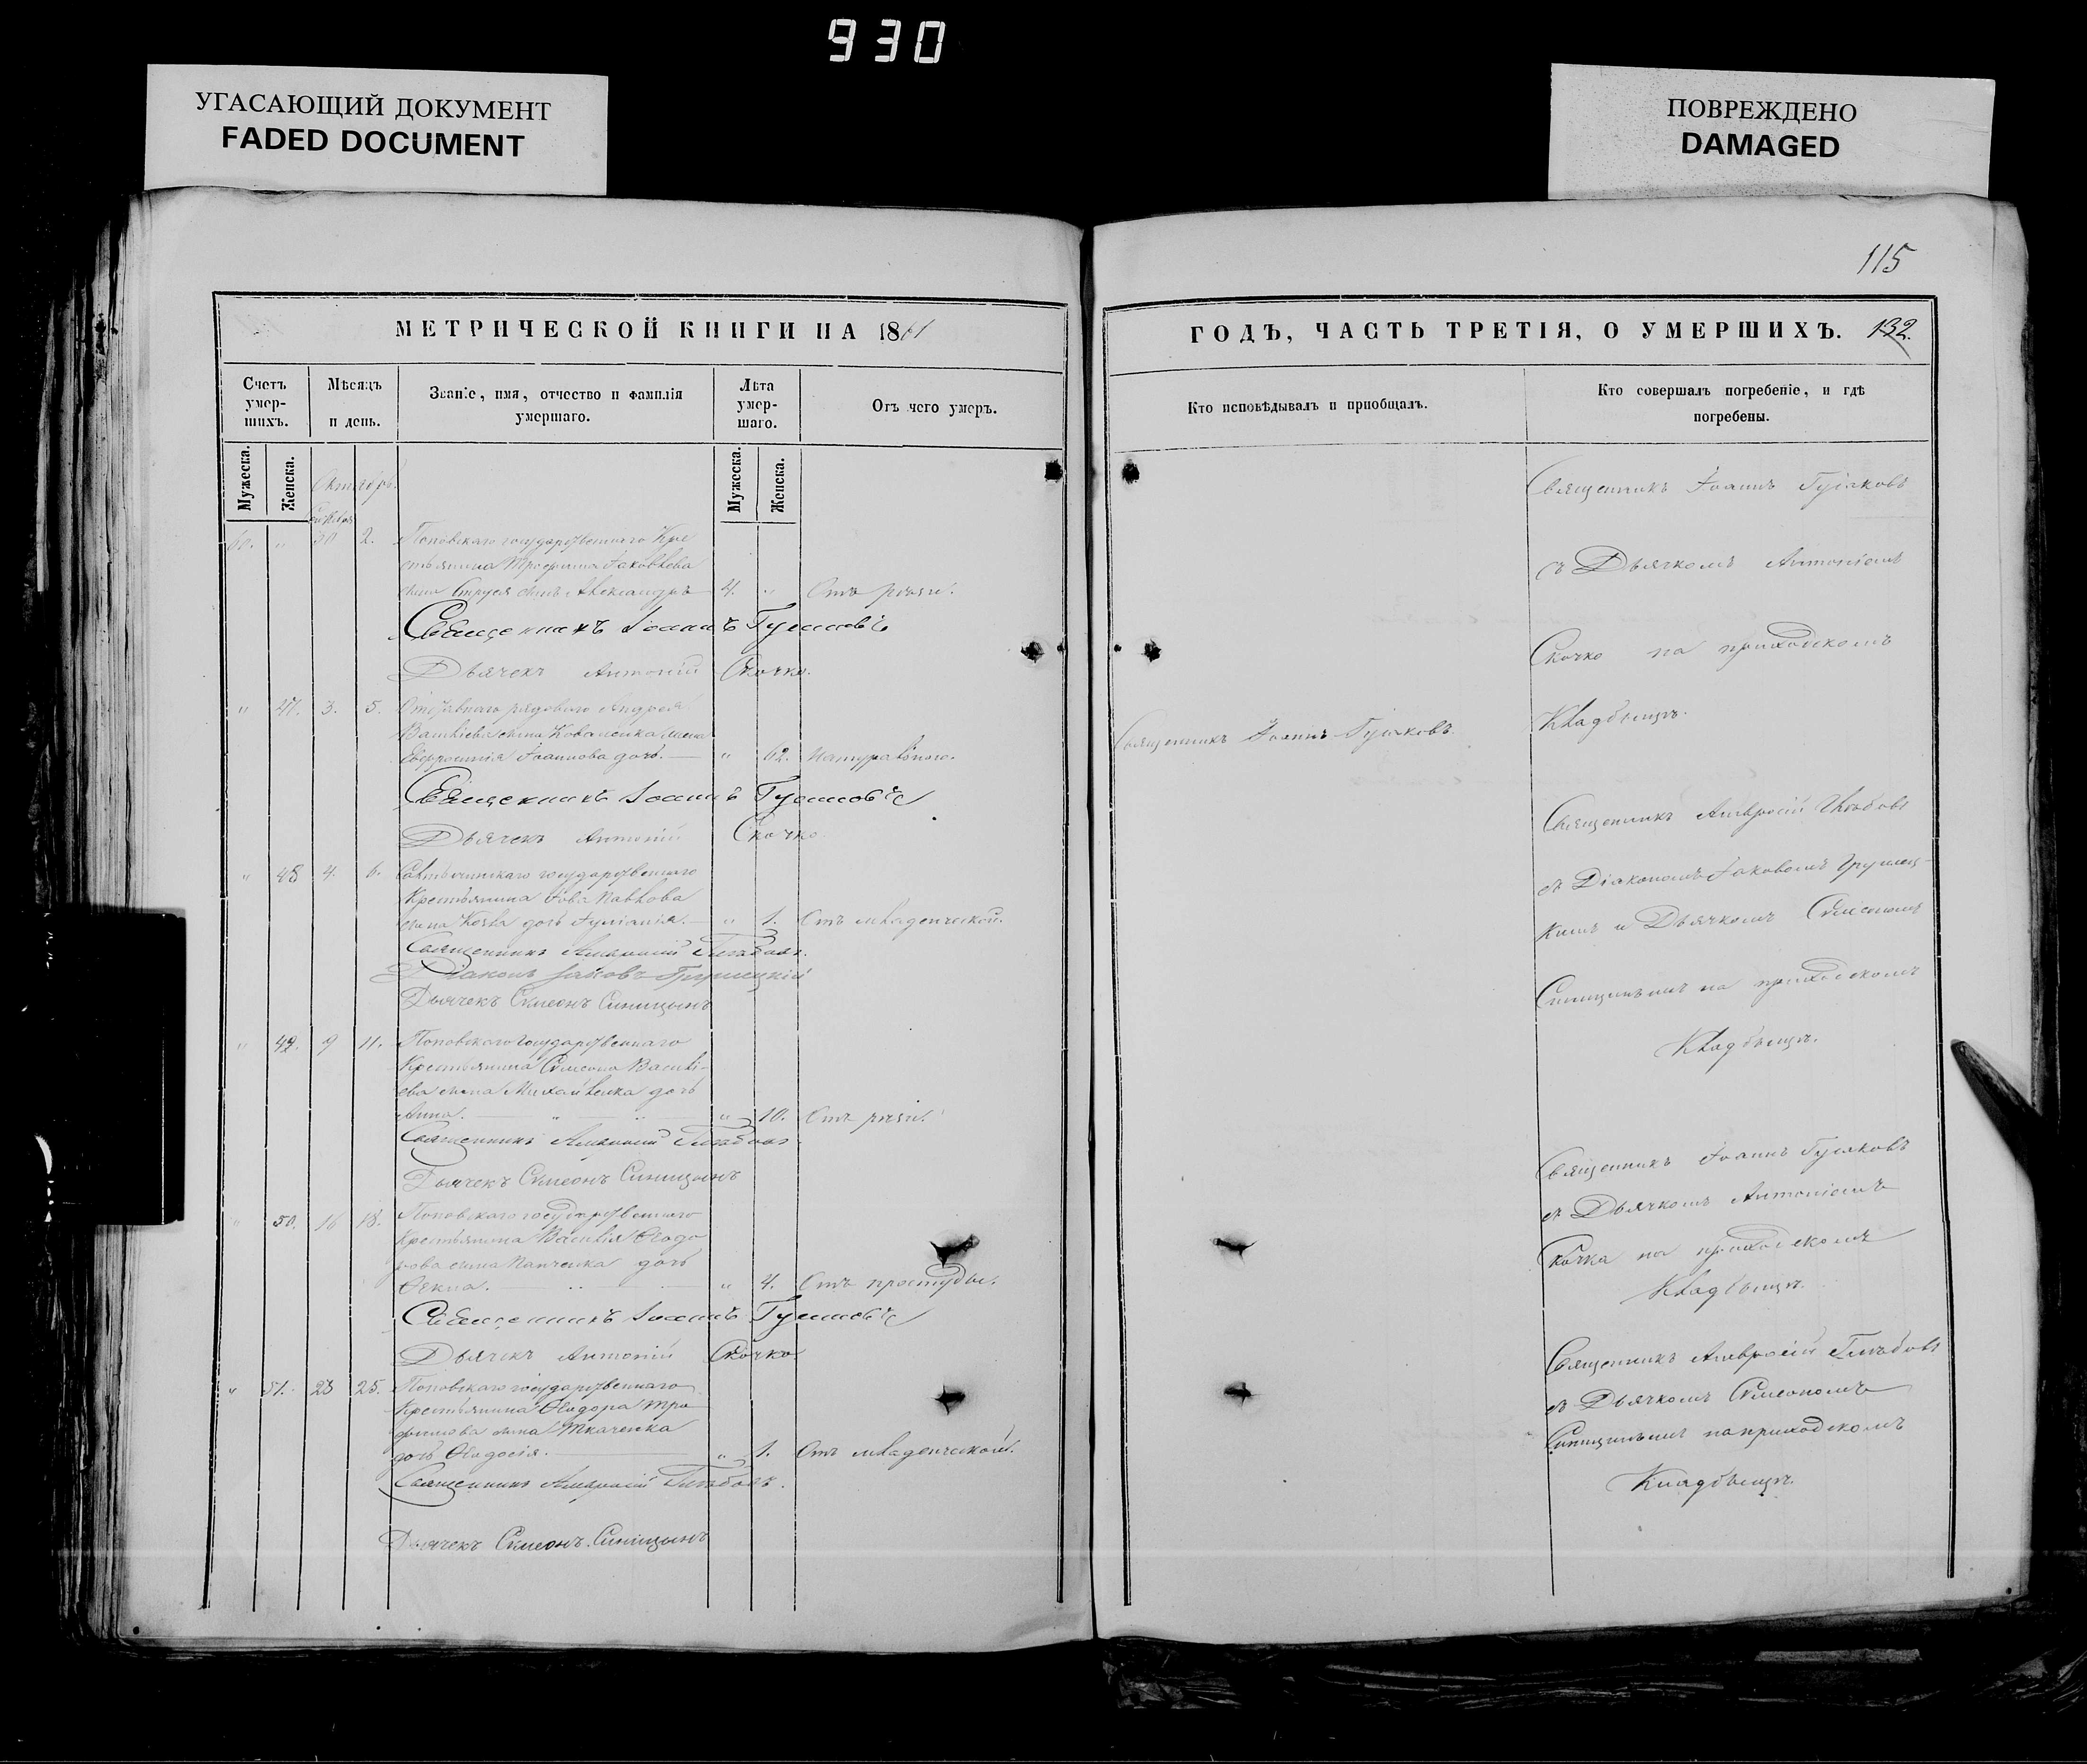 930
УГАСАЮЩИЙ ДОКУМЕНТ
FADED DOCUMENT
ПОВРЕЖДЕНО
DAMAGED
115
МЕТРИЧЕСКОЙ КНИГИ НА 1861
Счетъ умер-шихъ.
Мѣсяцъ и день.
Званіе, имя, отчество и фамилія умершаго.
Лѣта умер-шаго.
Отъ чего умеръ.
Мужеска.
Женска.
Мужеска.
Женска.
Октябрь.
60. „ 30 2. Поповскаго государственнаго Кре
стьянина Трофима Іаковлева
сына сынъ Александръ 4. „ Отъ
Священникъ Іоаннъ Гусаковъ
Дьячекъ Антоній Скочко.
„ 47. 3. 5. Отставнаго рядоваго Андрея
Василіева сына Коваленка жена
Евфросинія Іоаннова дочь. „ 62. Натуральною.
Священникъ Іоаннъ Гусаковъ
Дьячекъ Антоній Скочко
„ 48 4. 6. государственнаго
Крестьянина Іова Павлова
сына дочь Іуліанія. „ 1. Отъ младенческой.
Священникъ Амвросій Глѣбовъ.
Діаконъ Іаковъ Грушецкій
Дьячекъ Сѵмеонъ Синицынъ
„ 49. 9 11. Поповскаго государственнаго
Крестьянина Сѵмеона Василі-
ева сына Михайленка дочь
Анна. „ 10. Отъ
Священникъ Амвросій Глѣбовъ
Дьячекъ Сѵмеонъ Синицынъ
„ 50. 16 18. Поповскаго государственнаго
Крестьянина Василія Ѳеодо
рова сына Панченка дочь
Ѳекла. „ 4. Отъ простуды.
Священникъ Іоаннъ Гусаковъ
Дьячекъ Антоній Скочко
„ 51. 23 25. Поповскаго государственнаго
Крестьянина Ѳеодора Тро
фимова сына Ткаченка
дочь Ѳеодосія. „ 1. Отъ младенческой.
Священникъ Амвросій Глѣбовъ.
Дьячекъ Сѵмеонъ Синицынъ
ГОДЪ, ЧАСТЬ ТРЕТІЯ, О УМЕРШИХЪ. 132.
Кто исповѣдывалъ и пріобщалъ.
Кто совершалъ погребеніе, и гдѣ погребены.
Священникъ Іоаннъ Гусаковъ.
Священникъ Іоаннъ Гусаковъ
съ Дьячкомъ Антоніемъ
Скочко на приходскомъ
Кладбищѣ.
Священникъ Амвросій Глѣбовъ
съ Діакономъ Іаковомъ Грушец-
кимъ и Дьячкомъ Сѵмеономъ
Синицынымъ на приходскомъ
Кладбищѣ.
Священникъ Іоаннъ Гусаковъ
съ Дьячкомъ Антоніемъ
Скочка на приходскомъ
Кладбищѣ.
Священникъ Амвросій Глѣбовъ
съ Дьячкомъ Сѵмеономъ
Синицынымъ на приходскомъ
Кладбищѣ.